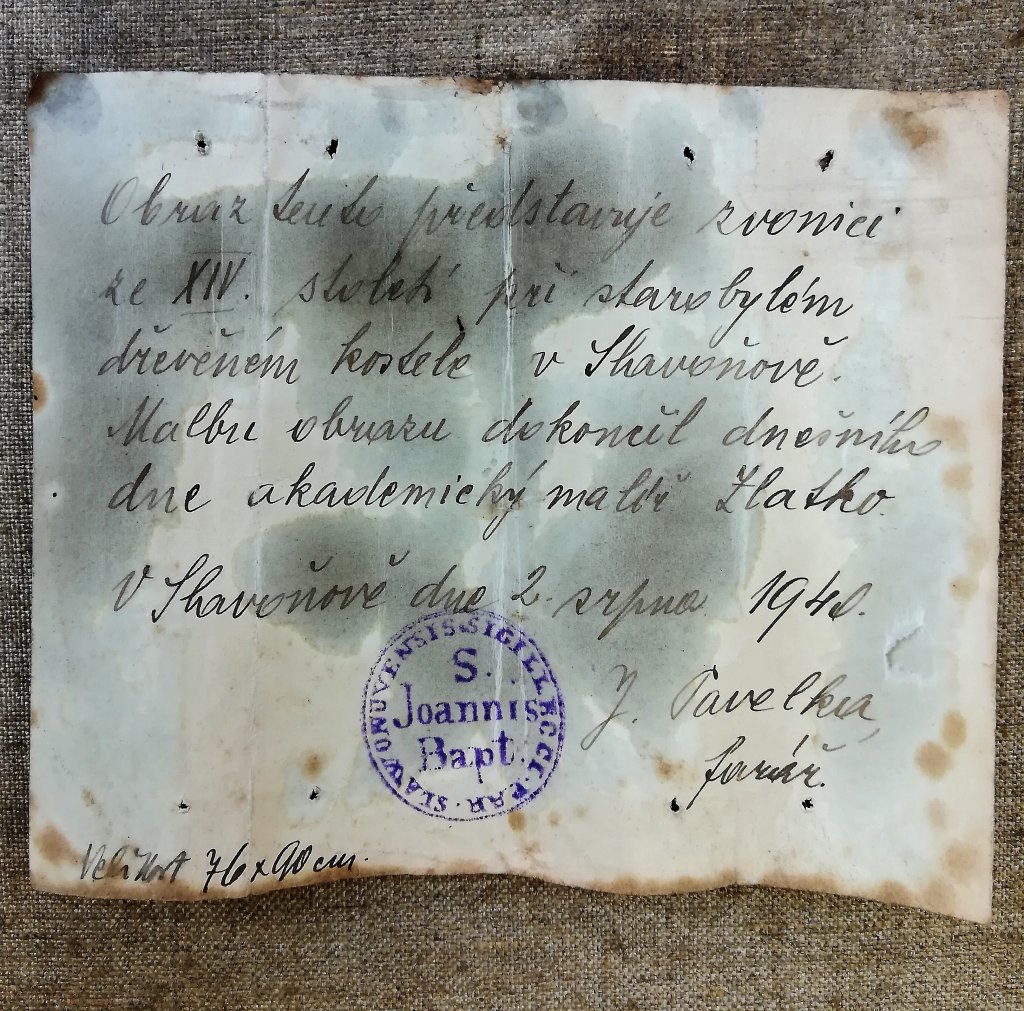 Obraz tento představuje zvonici
ze XIV. století při starobylém
dřevěném kostele v Slavoňově.
Malbu obrazu dokončil dnešního
dne akademický malíř Zlatko
V Slavoňově dne 2. srpna 194
SIGILL. ECCL. PAR. SLAWONUVENSIS
S.
Joannis
Bapt.
J. Pavelka,
farář.
Velikost 76 x 90 cm.